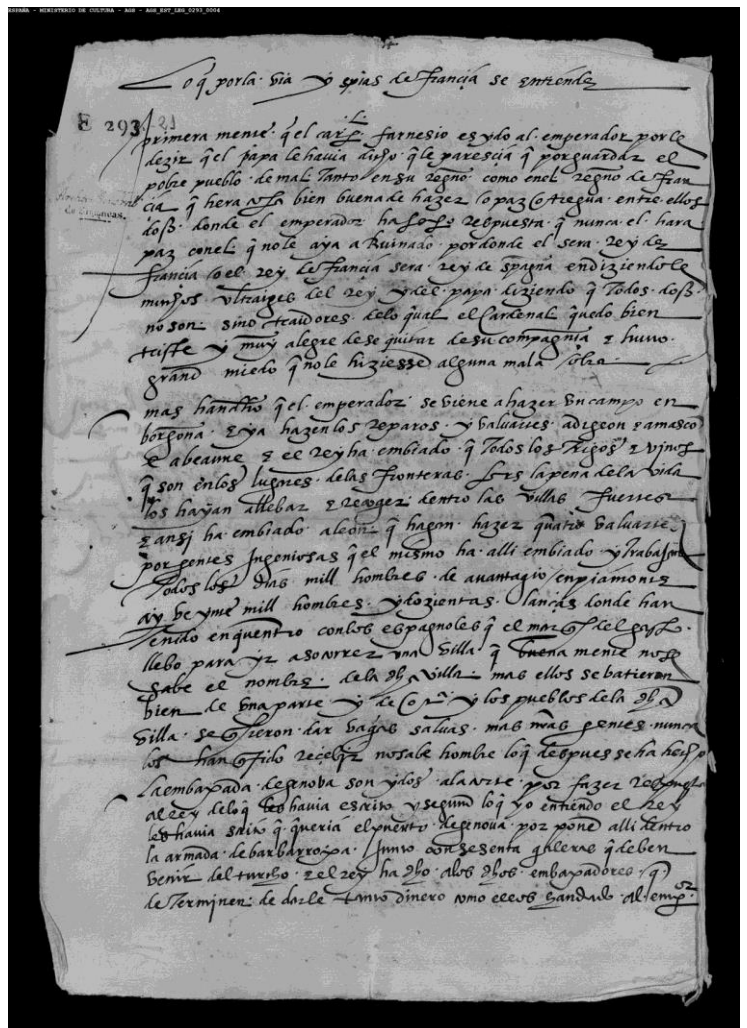 ESPAÑA - MINISTERIO DE CULTURA - AGS - AGS_EST_LEG_0293_0004
Lo q̃ por la via y spias de francia se entiende
E 293 / 21
primera mente q̃ el car.l farnesio es ydo al emperador por le
dezir q̃ el papa le havia dicho q̃ le parescia q̃ por guardar el
pobre pueblo de mal tanto en su regno como en el regno de fran
cia q̃ hera bien buena de hazer lo paz o tregua entre ellos
dos donde el emperador ha respuesta q̃ nunca el hara
paz con el q̃ no le aya a Ruinado por donde el sera rey de
francia o el rey de francia sera rey de spagna en diziendo le
muchos ultraiges del rey y del papa diziendo q̃ todos dos
no son sino traidores de lo qual el Cardenal quedo bien
triste y muy alegre de se quitar de su compagnia e huvo
grand miedo q̃ no le hiziesse alguna mala obra
mas han dicho q̃ el emperador se viene a hazer un campo en
borgona e ya hazen los reparos y valuartes a digeon e a mascõ
e a beaune e el rey ha embiado q̃ todos los trigos e vinos
q̃ son en los lugares de las fronteras so la pena de la vida
los hayan allebar e recoger dentro las villas fuertes
e ansi ha embiado a leon q̃ hagan hazer quatro valuartes
por gentes Ingeniosas q̃ el mismo ha alli embiado y trabajan
todos los dias mill hombres de avantagio en piamonte
ay veynte mill hombres y dozientas lanças donde han
tenido enquentro con los espagnoles q̃ el del
llebo para yr a socorrer una villa q̃ buena mente no se
sabe el nombre de la dha villa mas ellos se batieron
bien de una parte y de y los pueblos de la dha
villa se dar vagas salvas mas gentes nunca
los han recebir no sabe hombre lo q̃ despues se ha hecho
La embaxada de genova son ydos a la corte por fazer respuesta
al rey de lo q̃ havia escrito y segund lo q̃ yo entiendo el rey
les havia scrito q̃ queria el puerto de genova por poner alli dentro
la armada de barbarroxa Junto con sesenta galeras q̃ deben
venir del turcho e el rey ha dho a los dhos embaxadores q̃
determinen de darle tanto dinero como ellos han dado al emp.or